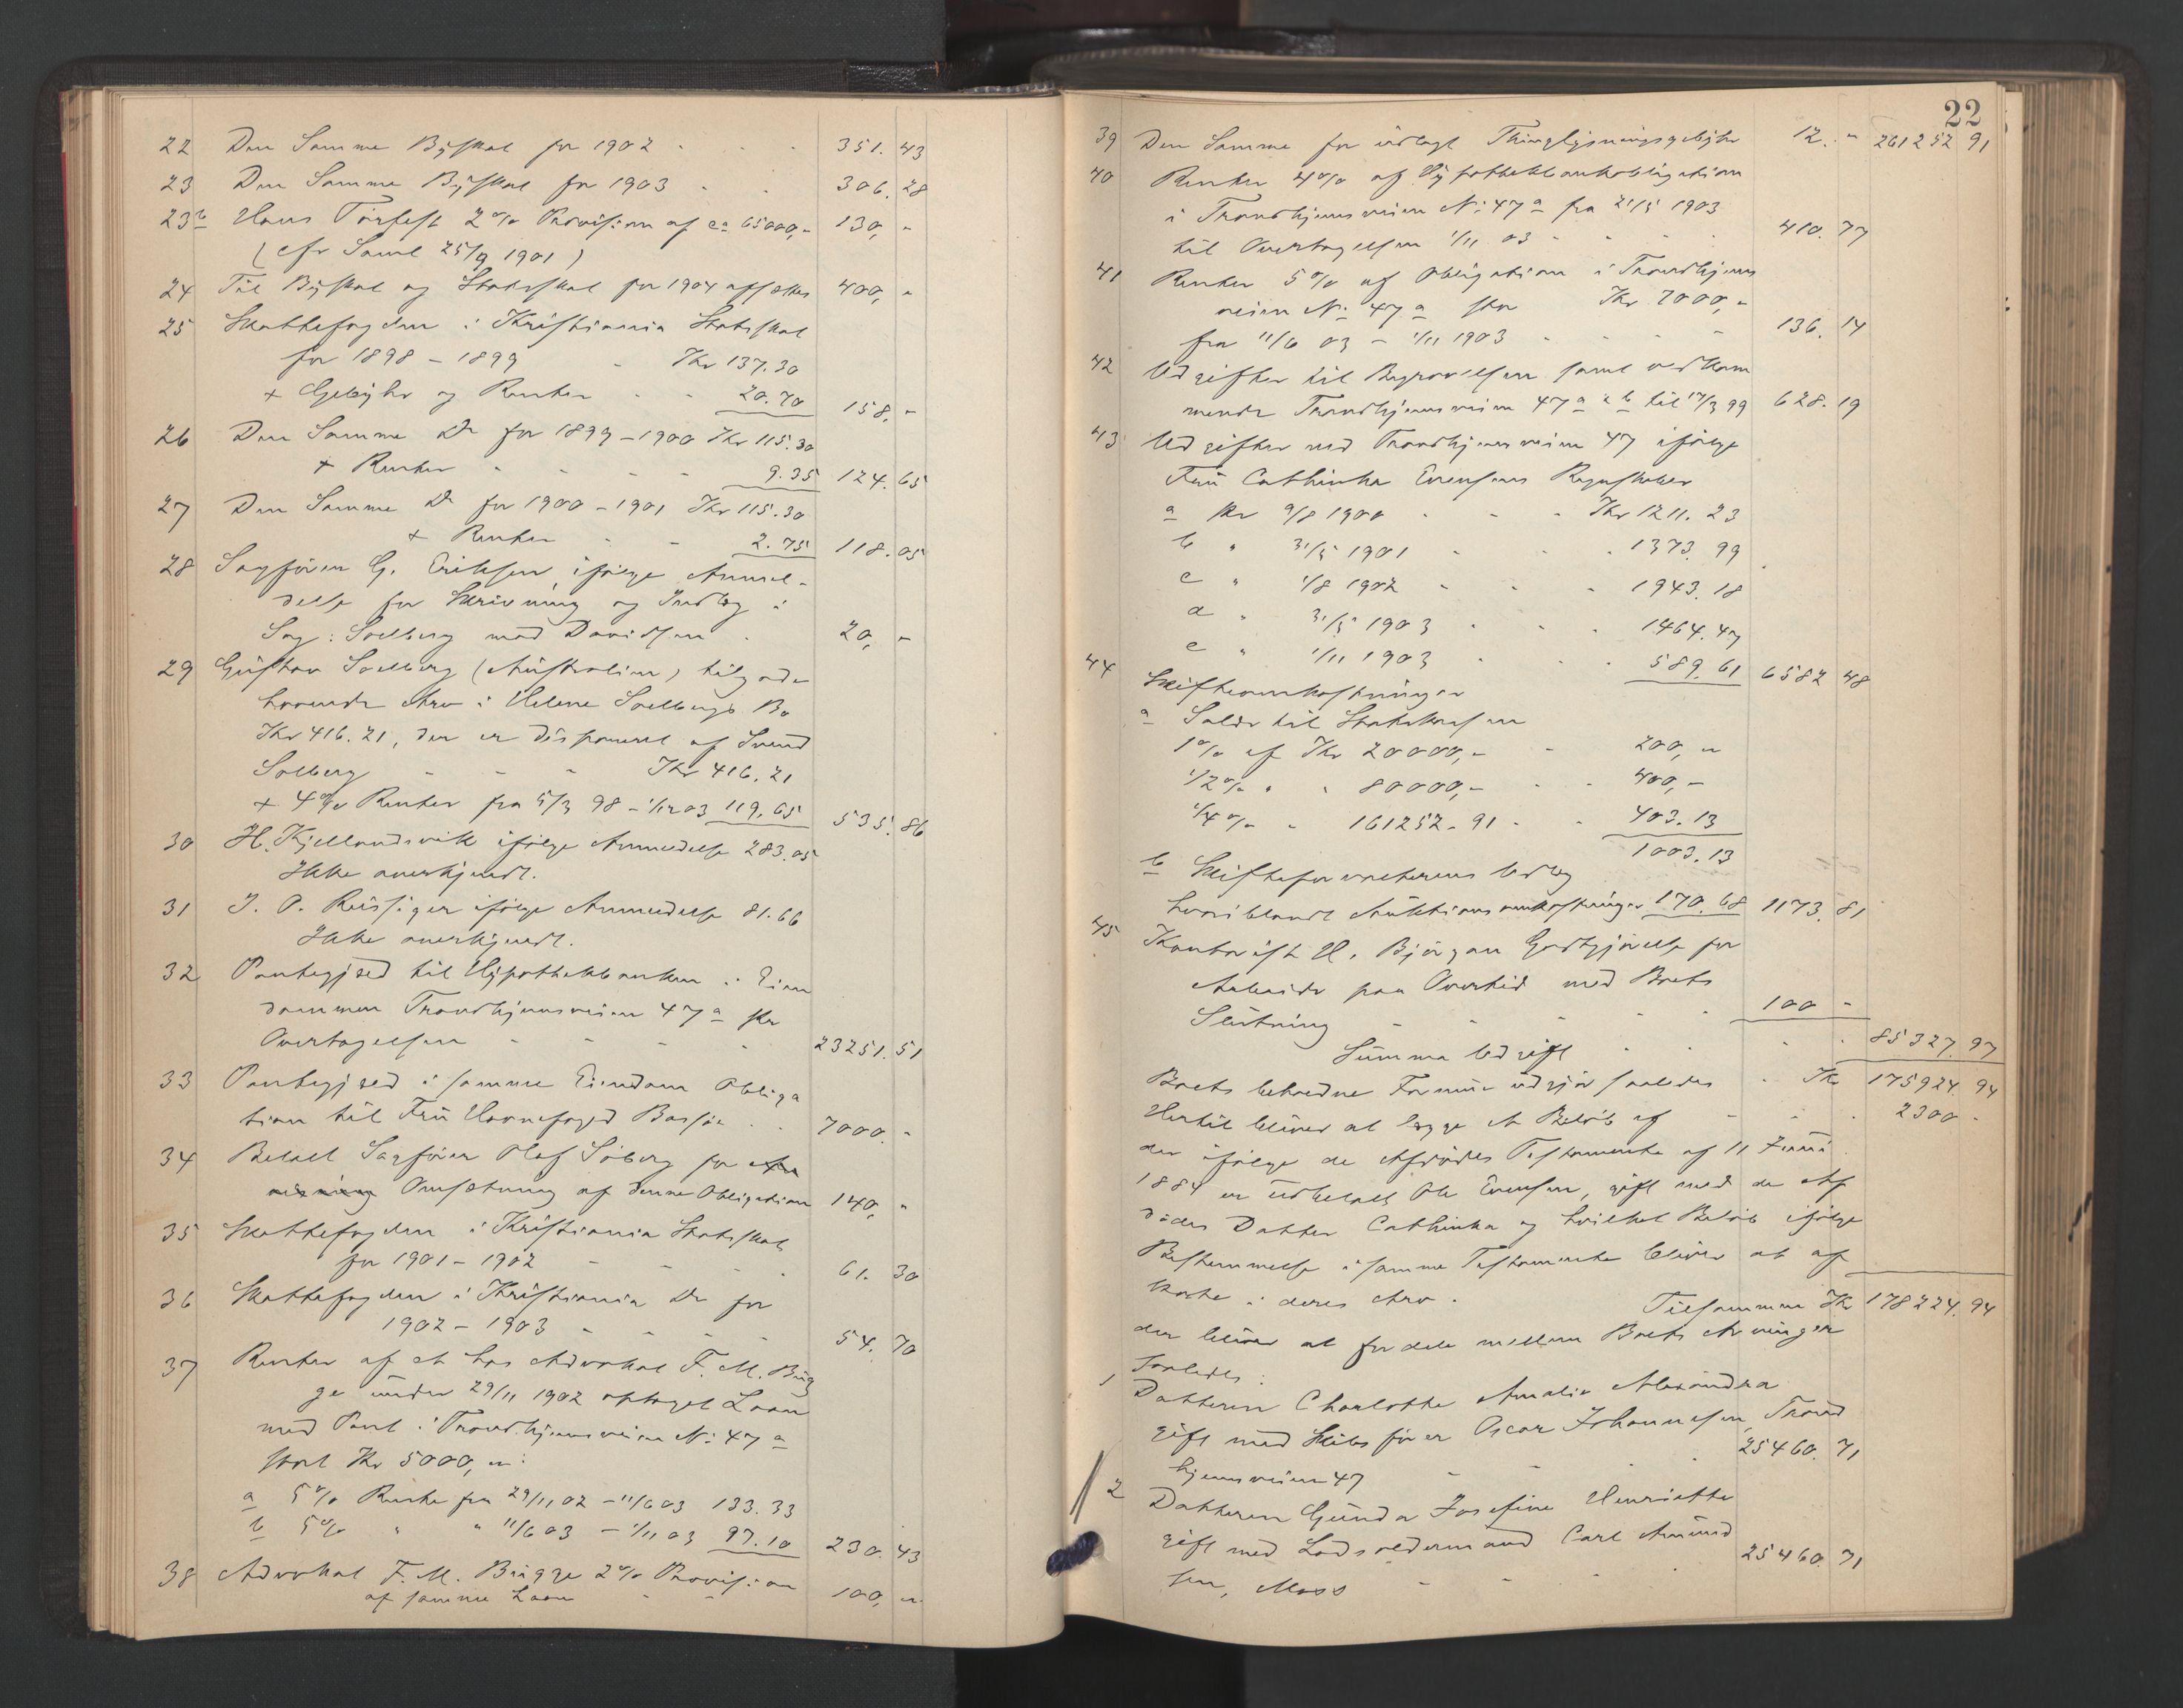 22 Den Samme Byskat for 1902 - - - 351. 43
23 Den Samme Byskat for 1903 - - 306. 28
23b Hans Torfest 2% Provision af ca 65000,- 130, -
(cfr Saml 25/9 1901)
24 Til Byskat og Statsskat for 1904 afsættes 400, -
25 Skattefogden i Kristiania Statsskat
for 1898 - 1899 - Kr 137.30
+ Gebyhr og Renter - - 20.70 158, -
26 Den Samme Do for 1899-1900 Kr 115.30
+ Renter - - - - 9.35 124. 65
27 Den Samme Do for 1900-1901 Kr 115.30
+ Renter - - 2.75 118. 05
28 Sagfører G. Eriksen ifølge Anmel-
delse for Skrivning og Indlæg i
Sag: Solberg mod Davidsen - 20, -
29 Gustav Solberg (Australien) tilgode
havende Arv i Helene Solbergs Bo
Kr 416.21, der er disponeret af Svend
Solberg - - - Kr 416.21
+ 4% Renter fra 5/3 98 - 1/12 03 119,65 535. 86
30 H. Kjellandsvik ifølge Anmeldelse 283.05
Ikke anerkjendt.
31 J. O. Reissiger ifølge Anmeldelse 81.66
Ikke anerkjendt.
32 Pantegjæld til Hypothekbanken i Eien
dommen Trondhjemsveien 47a pr
Overtagelsen - - - - 23251. 51
33 Pantegjæld i samme Eiendom Obliga
tion til Fru Havnefoged Basjøe - - 7000. -
34 Betalt Sagfører Olaf Søberg for An
visning Omsætning af denne Obligation 140, -
35 Skattefogden i Kristiania Statsskat
for 1901 - 1902 - - - - 61. 30
36 Skattefogden i Kristiania Do for
1902 - 1903 - - - - 54. 70
37 Renter af et hos Advokat F. M. Büg
ge under 29/11 1902 optaget Laan
mod Pant i Trondhjemsveien No 47a
stort Kr 5000,-:
a 5% Rente fra 29/11 02 - 11/6 03 133.33
b 5% " " 11/6 03 - 1/11 03 97.10 230. 43
38 Advokat F. M. Bügge 2% Provision
af samme Laan - - 100, -
22
39 Den Samme for udlagt Thinglysningsgebyhr 12. - 261252 91
40 Renter 4% af Hypothekbankobligation
i Trondhjemsveien No 47a fra 21/5 1903
til Overtagelsen 1/11 03 - - - - 410. 77
41 Renter 5% af Obligation i Trondhjems
veien No 47a stor Kr 7000,-
fra 11/6 03 - 1/11 1903 - - - - 136. 14
42 Udgifter til Begravelsen samt vedkom
mende Trondhjemsveien 47a & b til 17/3 99 628. 19
43 Udgifter ved Trondhjemsveien 47 ifølge
Fru Cathinka Evensens Regnskaber
a pr 9/8 1900 - - - Kr 1211. 23
b " 31/5 1901 - - - 1373. 99
c " 1/8 1902 - - - 1943. 18
d " 31/5 1903 - - - 1464. 47
e " 1/11 1903 - - - 589. 61 6582 48
44 Skifteomkostninger
a Saldo til Statskassen
1% af Kr 20000,- - 200, -
1/2% " " 80000,- - - 400, -
1/4% " 161252.91 - - 403.13
1003.13
b Skifteforvalterens Udlæg
hvoriblandt Auktionsomkostninger 170.68 1173. 81
45 Kontorist H. Bjørgan Godtgjørelse for
Arbeide paa Overtid med Boets
Slutning - - - - - 100 -
Summa Udgift - - - 85327. 97
Boets beholdne Formue udgjør saaledes - Kr 175924. 94
Hertil bliver at lægge et Beløb af - - - 2300 -
der ifølge de Afdødes Testamente af 11 Juni
1884 er udbetalt Ole Evensen, gift med de Af
dødes Datter Cathinka og hvilket Beløb ifølge
Bestemmelse i samme Testamente bliver at af
korte i deres Arv. Tilsammen Kr 178224. 94
der bliver at fordele mellem Boets Arvinger
saaledes:
1 Datteren Charlotte Amalie Alexandra
gift med Skibsfører Oscar Johannesen, Trond
hjemsveien 47 - - - 25460. 71
2 Datteren Gunda Josefine Henriette
gift med Lodsoldermand Carl Amund
sen, Moss - - - - 25460. 71